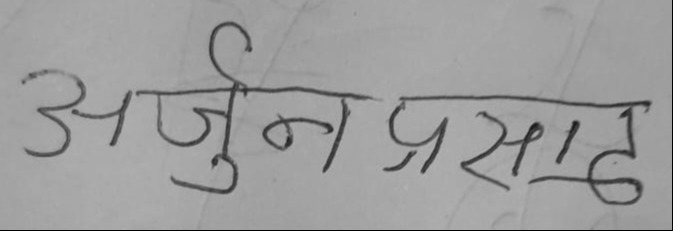 अर्जुन प्रसाद